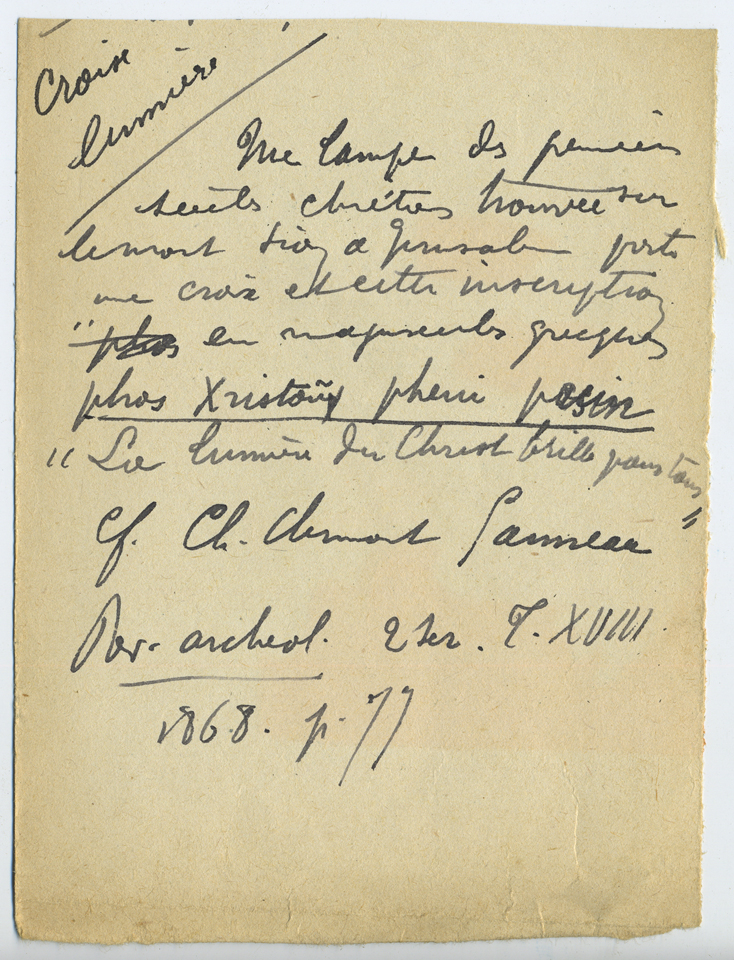 Croix
lumière
Une lampe des premiers
siècles chrétiens trouvée sur
le mont Sion à Jérusalem porte
une croix et cette inscription
"phos en majuscules grecques
phos Xristoũ pheni pasin
"La lumière du Christ brille pour tous"
Cf. Ch. Clermont Ganneau
Rev. archéol. 2 ser. T. XVIII
1868. p. 77